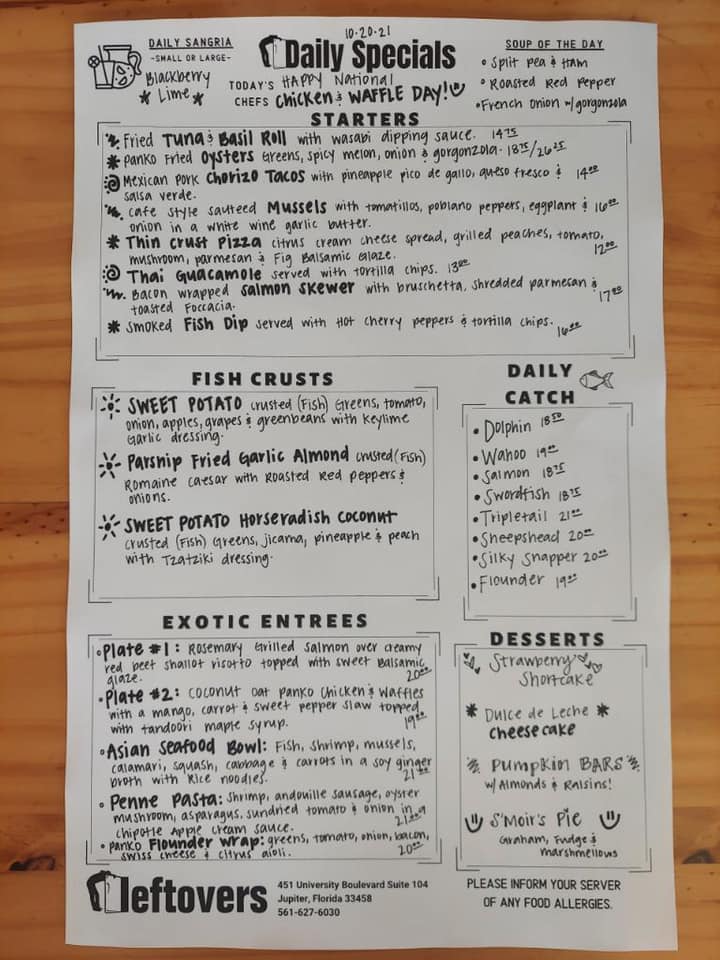 10-20-21
DAILY SANGRIA
-SMALL OR LARGE-
Blackberry
* Lime *
Daily Specials
TODAY'S HAPPY National
CHEFS Chicken & WAFFLE DAY!
SOUP OF THE DAY
• Split Pea & Ham
• Roasted Red Pepper
• French Onion w/ gorgonzola
STARTERS
Fried Tuna & Basil Roll with wasabi dipping sauce. 14.75
* Panko Fried Oysters Greens, spicy melon, onion & gorgonzola. 18.75/26.25
Mexican Pork Chorizo Tacos with pineapple pico de gallo, queso fresco & 14.00
salsa verde.
cafe style sauteed Mussels with tomatillos, poblano peppers, eggplant & 16.00
onion in a white wine garlic butter.
* Thin Crust Pizza citrus cream cheese spread, grilled peaches, tomato,
mushroom, parmesan & Fig Balsamic Glaze. 12.00
Thai Guacamole served with tortilla chips. 13.00
Bacon wrapped Salmon Skewer with bruschetta, shredded parmesan & 17.00
toasted Foccacia.
* Smoked Fish Dip served with Hot Cherry peppers & tortilla chips. 16.00
FISH CRUSTS
SWEET POTATO crusted (Fish) Greens, tomato,
onion, apples, grapes & greenbeans with Keylime
Garlic dressing.
Parship Fried Garlic Almond crusted (Fish)
Romaine caesar with Roasted Red peppers &
onions.
SWEET POTATO Horseradish Coconut
crusted (Fish) Greens, jicama, pineapple & peach
with Tzatziki dressing.
DAILY
CATCH
• Dolphin 18.50
• Wahoo 19.00
• Salmon 18.75
• Swordfish 18.75
• Tripletail 21.00
• Sheepshead 20.00
• Silky Snapper 20.00
• Flounder 19.00
EXOTIC ENTREES
• Plate #1: Rosemary Grilled Salmon over creamy
red beet shallot risotto topped with sweet Balsamic
glaze. 20.00
• Plate #2: Coconut Oat Panko Chicken & Waffles
with a mango, carrot & sweet pepper slaw topped
with tandoori maple syrup. 19.00
• Asian Seafood Bowl: Fish, shrimp, mussels,
calamari, squash, cabbage & carrots in a soy ginger
broth with Rice noodles. 21.00
• Penne Pasta: Shrimp, andouille sausage, oyster
mushroom, asparagus, sundried tomato & onion in a
chipotle Apple cream sauce. 21.00
• Panko Flounder Wrap: greens, tomato, onion, bacon,
swiss cheese & citrus aioli. 20.00
DESSERTS
Strawberry
Shortcake
* Dulce de Leche *
Cheesecake
Pumpkin BARS
w/ Almonds & Raisins!
S'Moir's Pie
Graham, Fudge &
marshmellows
leftovers
451 University Boulevard Suite 104
Jupiter, Florida 33458
561-627-6030
PLEASE INFORM YOUR SERVER
OF ANY FOOD ALLERGIES.